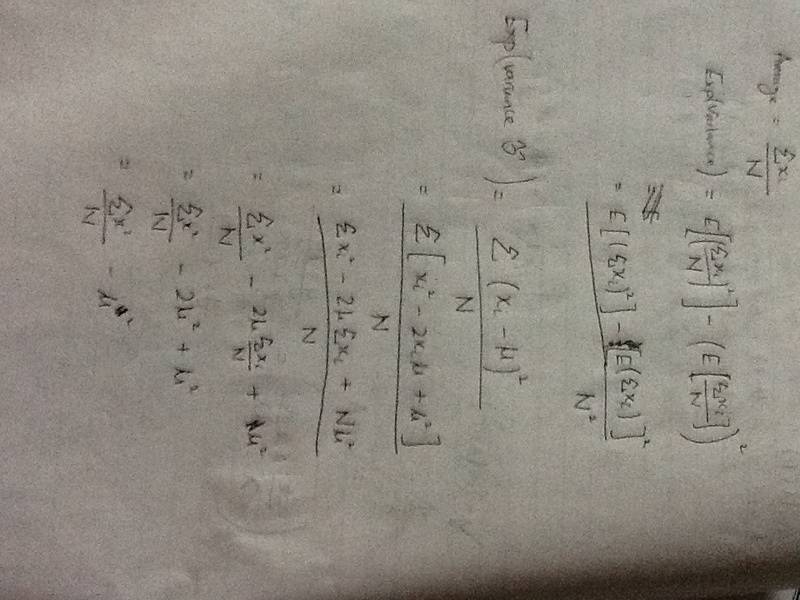 Average = Σxi / N
Exp(Variance) = E[(Σxi / N)²] - (E[Σxi / N])²
= E[(Σxi)²] - [E(Σxi)]² / N²
Exp(variance ) = Σ (xi - μ)² / N
= Σ [xi² - 2xiμ + μ²] / N
= Σxi² - 2μΣxi + Nμ² / N
= Σx² / N - 2μ Σxi / N + μ²
= Σx² / N - 2μ² + μ²
= Σx² / N - μ²